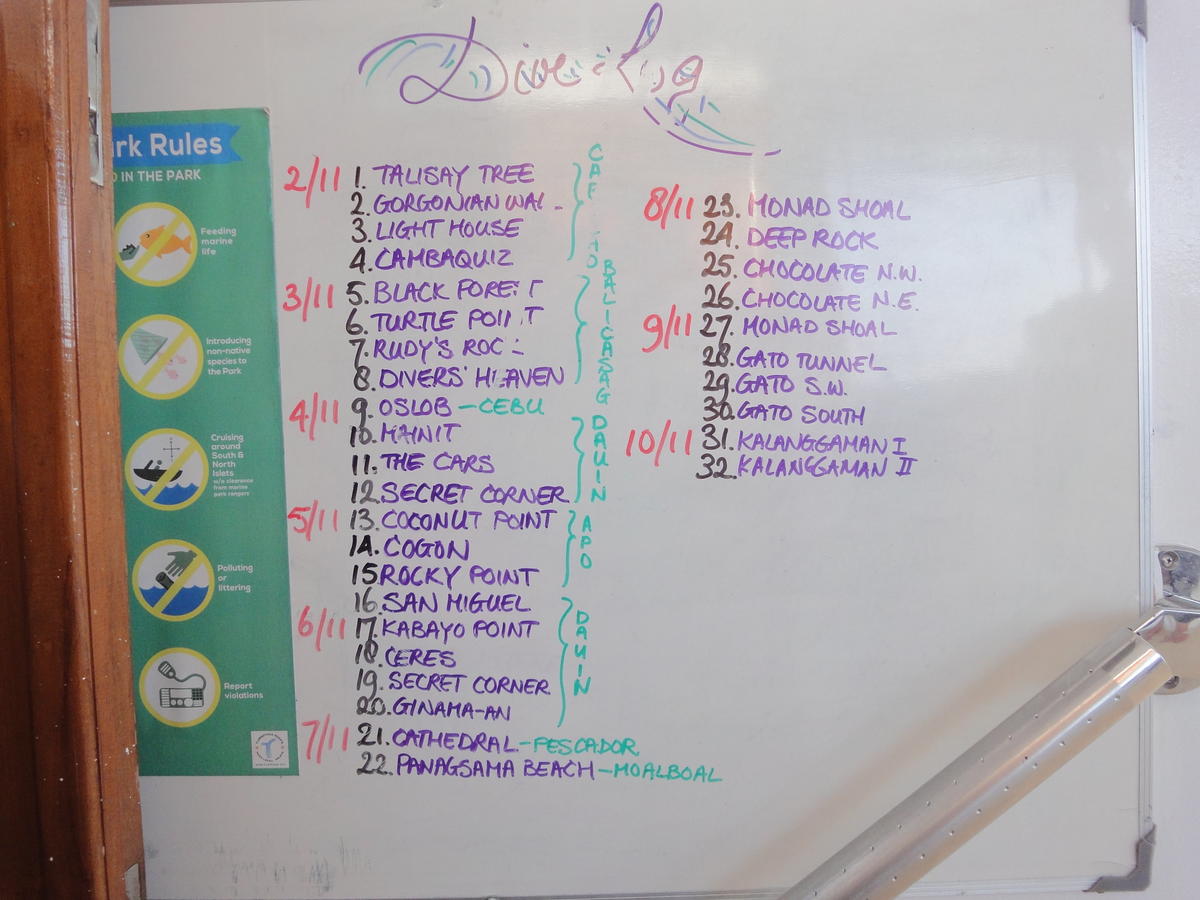 Dive Log
rk Rules
IN THE PARK
Feeding
marine
life
Introducing
non-native
species to
the Park
Cruising
around
South &
North
Islets
w/o clearance
from marine
park rangers
Polluting
or
littering
Report
violations
2/11 1. TALISAY TREE
2. GORGONIAN WAL
3. LIGHT HOUSE
4. CAMBAQUIZ
3/11 5. BLACK FORE T
6. TURTLE POI T
7. RUDY'S ROC
8. DIVERS' H AVEN
BALICASAG
4/11 9. OSLOB - CEBU
10. MAINIT
11. THE CARS
12. SECRET CORNER
DAUIN
5/11 13. COCONUT POINT
14. COGON
15. ROCKY POINT
APO
16. SAN MIGUEL
6/11 17. KABAYO POINT
18. CERES
19. SECRET CORNER
20. GINAMA-AN
DAUIN
7/11 21. CATHEDRAL - PESCADOR
22. PANAGSAMA BEACH - MOALBOAL
8/11 23. MONAD SHOAL
24. DEEP ROCK
25. CHOCOLATE N.W.
26. CHOCOLATE N.E.
9/11 27. MONAD SHOAL
28. GATO TUNNEL
29. GATO S.W.
30. GATO SOUTH
10/11 31. KALANGGAMAN I
32. KALANGGAMAN II